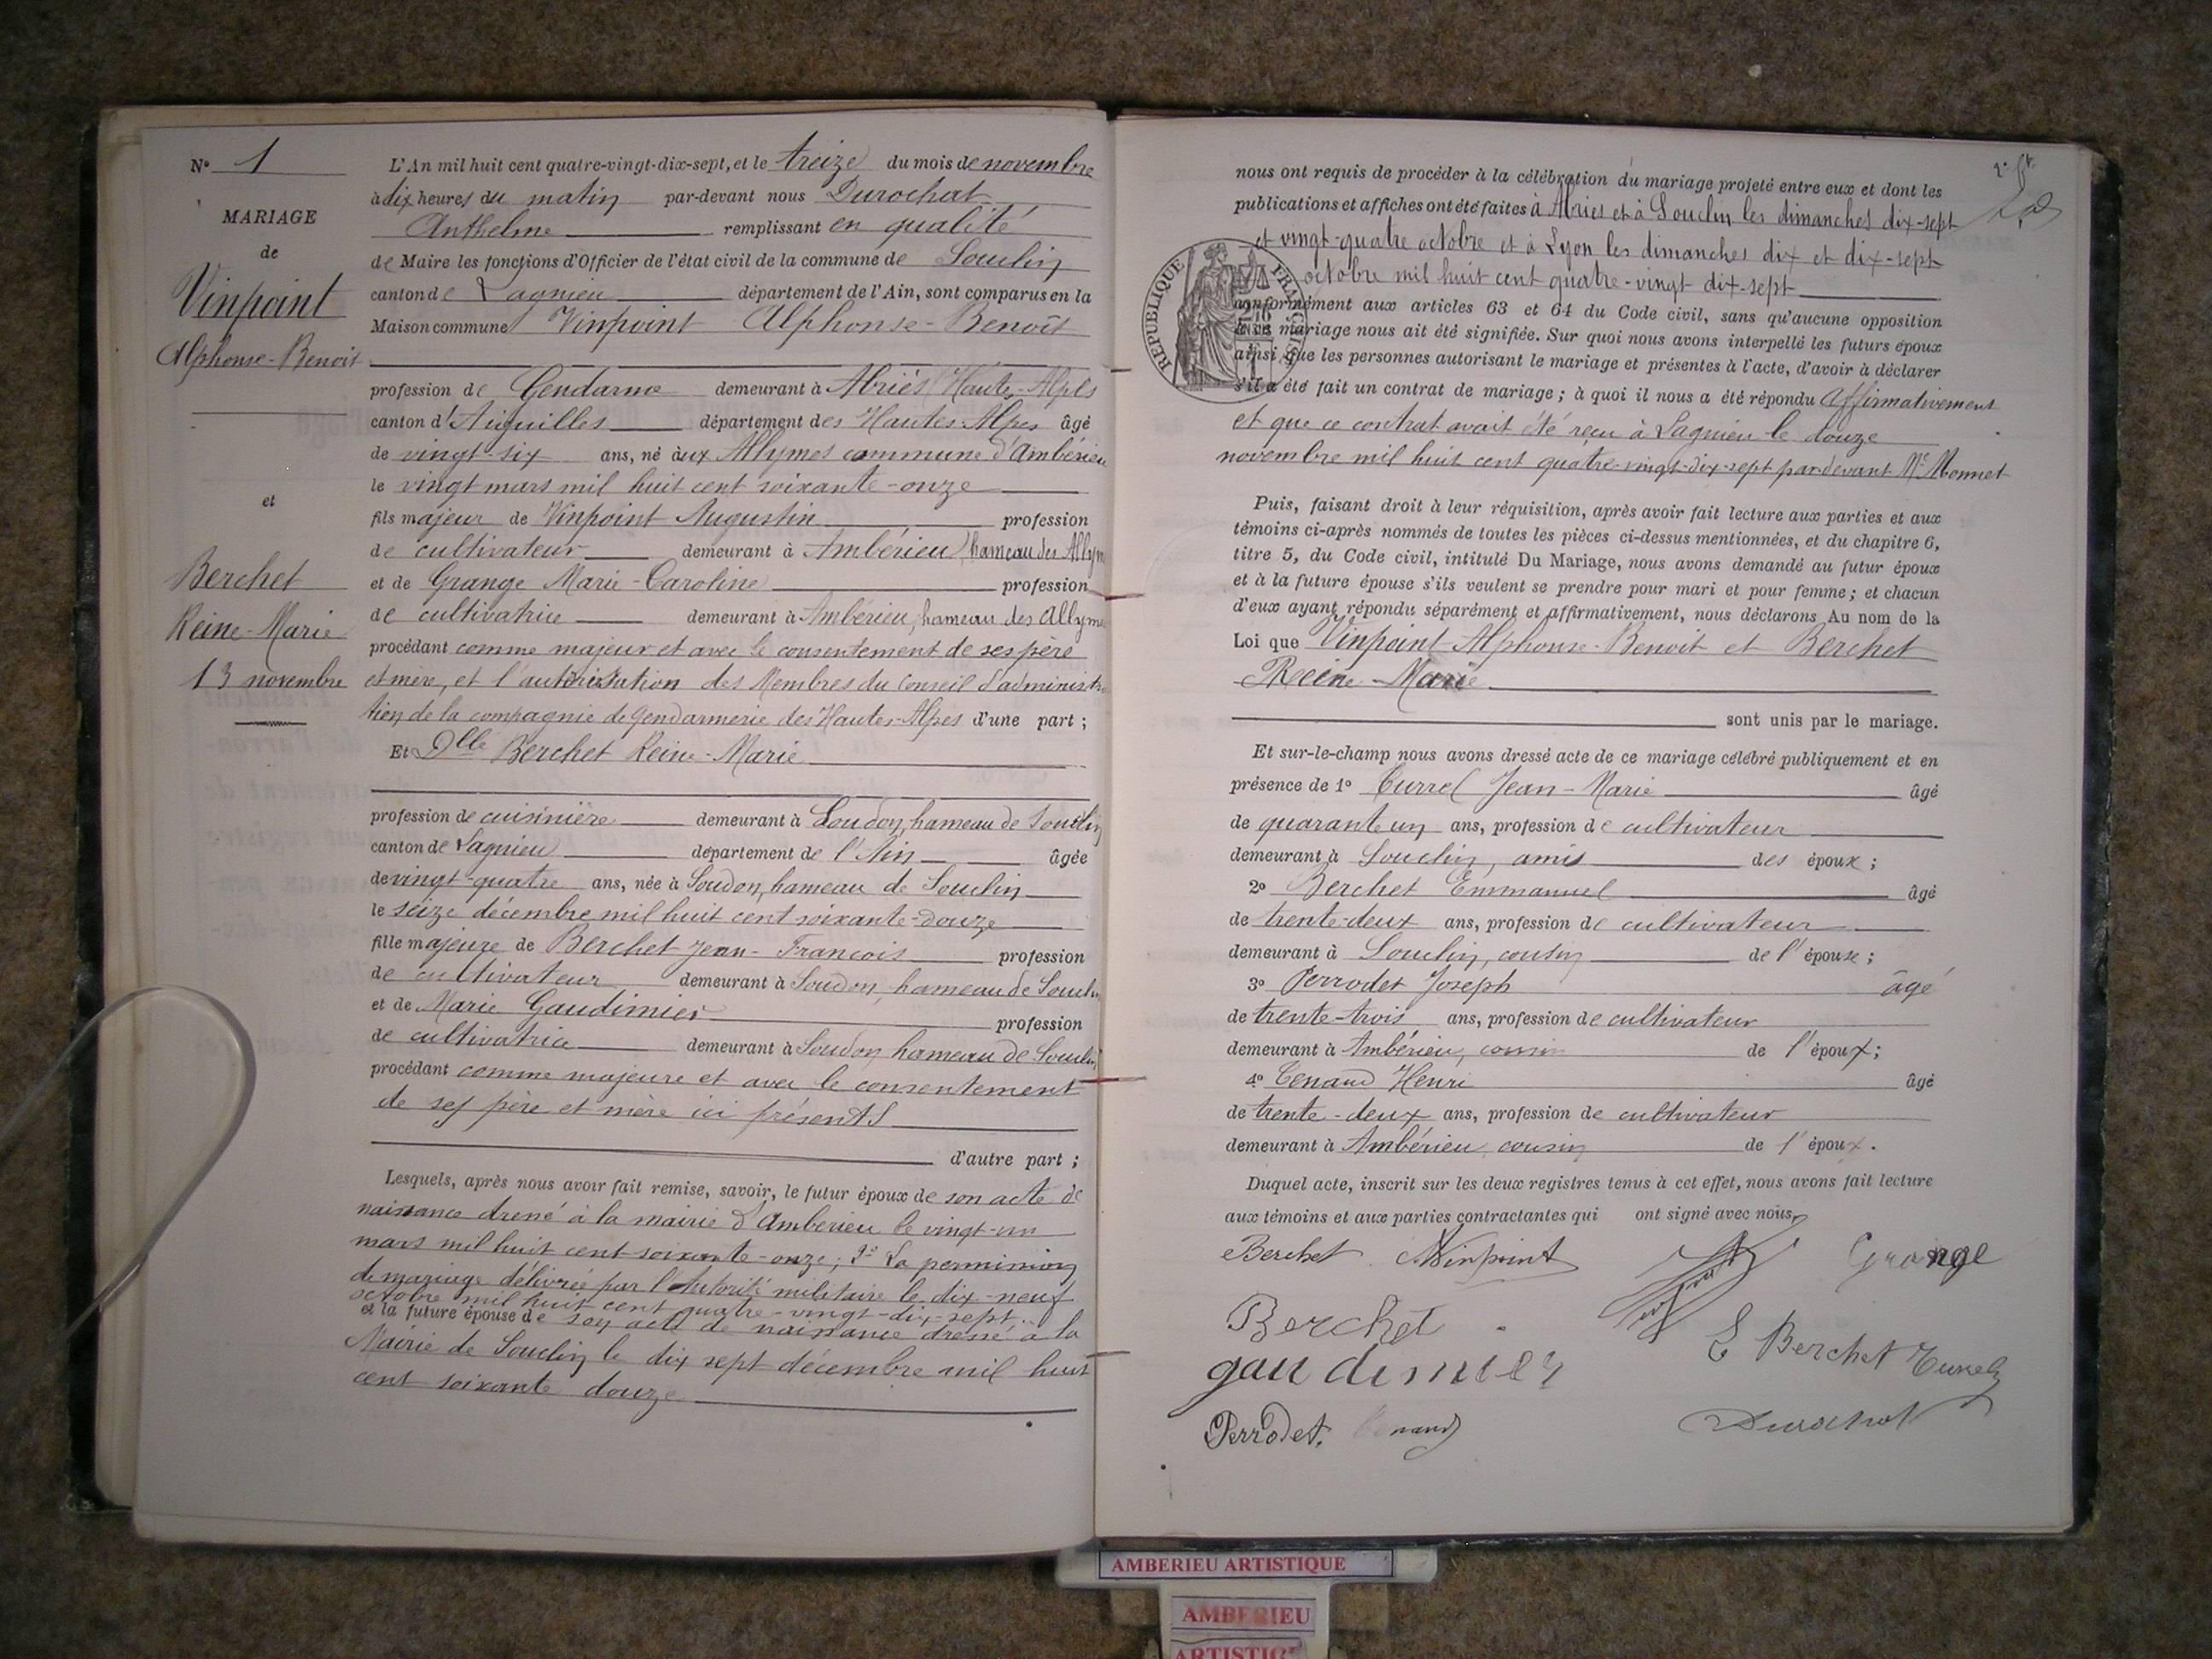 N° 1
MARIAGE
de
Vinpoint
Alphonse-Benoit
et
Berchet
Reine-Marie
13 novembre
L'An mil huit cent quatre-vingt-dix-sept, et le treize du mois de novembre
à dix heures du matin par-devant nous Durochat
Anthelme remplissant en qualité
de Maire les fonctions d'Officier de l'état civil de la commune de Souclin
canton de Lagnieu département de l'Ain, sont comparus en la
Maison commune Vinpoint Alphonse-Benoit
profession de Gendarme demeurant à Abriès Hautes-Alpes
canton d'Aiguilles département des Hautes-Alpes âgé
de vingt-six ans, né aux Allymes commune d'Ambérieu
le vingt mars mil huit cent soixante-onze
fils majeur de Vinpoint Augustin profession
de cultivateur demeurant à Ambérieu, hameau des Allym
et de Grange Marie-Caroline profession
de cultivatrice demeurant à Ambérieu, hameau des Allyme
procédant comme majeur et avec le consentement de ses père
et mère, et l'autorisation des Membres du Conseil d'administra
tion de la compagnie de gendarmerie des Hautes-Alpes d'une part ;
Et Dlle Berchet Reine-Marie
profession de cuisinière demeurant à Soudon, hameau de Souclin
canton de Lagnieu département de l'Ain âgée
de vingt-quatre ans, née à Soudon, hameau de Souclin
le seize décembre mil huit cent soixante-douze
fille majeure de Berchet Jean-François profession
de cultivateur demeurant à Soudon, hameau de Souclin
et de Marie Gaudimier profession
de cultivatrice demeurant à Soudon, hameau de Souclin
procédant comme majeure et avec le consentement
de ses père et mère ici présents
d'autre part ;
Lesquels, après nous avoir fait remise, savoir, le futur époux de son acte de
naissance dressé à la mairie d'Ambérieu le vingt-un
mars mil huit cent soixante-onze ; 2° La permission
de mariage délivrée par l'Autorité militaire le dix-neuf
octobre mil huit cent quatre-vingt-dix-sept
et la future épouse de son acte de naissance dressé à la
Mairie de Souclin le dix sept décembre mil huit
cent soixante douze
nous ont requis de procéder à la célébration du mariage projeté entre eux et dont les
publications et affiches ont été faites à Abriès et à Souclin les dimanches dix-sept
et vingt-quatre octobre et à Lyon les dimanches dix et dix-sept
octobre mil huit cent quatre-vingt dix-sept
RÉPUBLIQUE FRANÇAISE
conformément aux articles 63 et 64 du Code civil, sans qu'aucune opposition
à ce mariage nous ait été signifiée. Sur quoi nous avons interpellé les futurs époux
ainsi que les personnes autorisant le mariage et présentes à l'acte, d'avoir à déclarer
s'il a été fait un contrat de mariage ; à quoi il nous a été répondu Affirmativement
et que ce contrat avait été reçu à Lagnieu le douze
novembre mil huit cent quatre-vingt-dix-sept par-devant Me Monnet
Puis, faisant droit à leur réquisition, après avoir fait lecture aux parties et aux
témoins ci-après nommés de toutes les pièces ci-dessus mentionnées, et du chapitre 6,
titre 5, du Code civil, intitulé Du Mariage, nous avons demandé au futur époux
et à la future épouse s'ils veulent se prendre pour mari et pour femme ; et chacun
d'eux ayant répondu séparément et affirmativement, nous déclarons Au nom de la
Loi que Vinpoint Alphonse-Benoit et Berchet
Reine-Marie
sont unis par le mariage.
Et sur-le-champ nous avons dressé acte de ce mariage célébré publiquement et en
présence de 1° Turrel Jean-Marie âgé
de quarante un ans, profession de cultivateur
demeurant à Souclin, amis des époux ;
2° Berchet Emmanuel âgé
de trente-deux ans, profession de cultivateur
demeurant à Souclin, cousin de l'épouse ;
3° Perrodet Joseph âgé
de trente-trois ans, profession de cultivateur
demeurant à Ambérieu, cousin de l'époux ;
4° Tenand Henri âgé
de trente-deux ans, profession de cultivateur
demeurant à Ambérieu, cousin de l'époux.
Duquel acte, inscrit sur les deux registres tenus à cet effet, nous avons fait lecture
aux témoins et aux parties contractantes qui ont signé avec nous.
Berchet Vinpoint Grange
Berchet
E Berchet Turrel
gaudimier
Perrodet. Tenand Durochat
AMBERIEU ARTISTIQUE
AMBERIEU
ARTISTIQUE